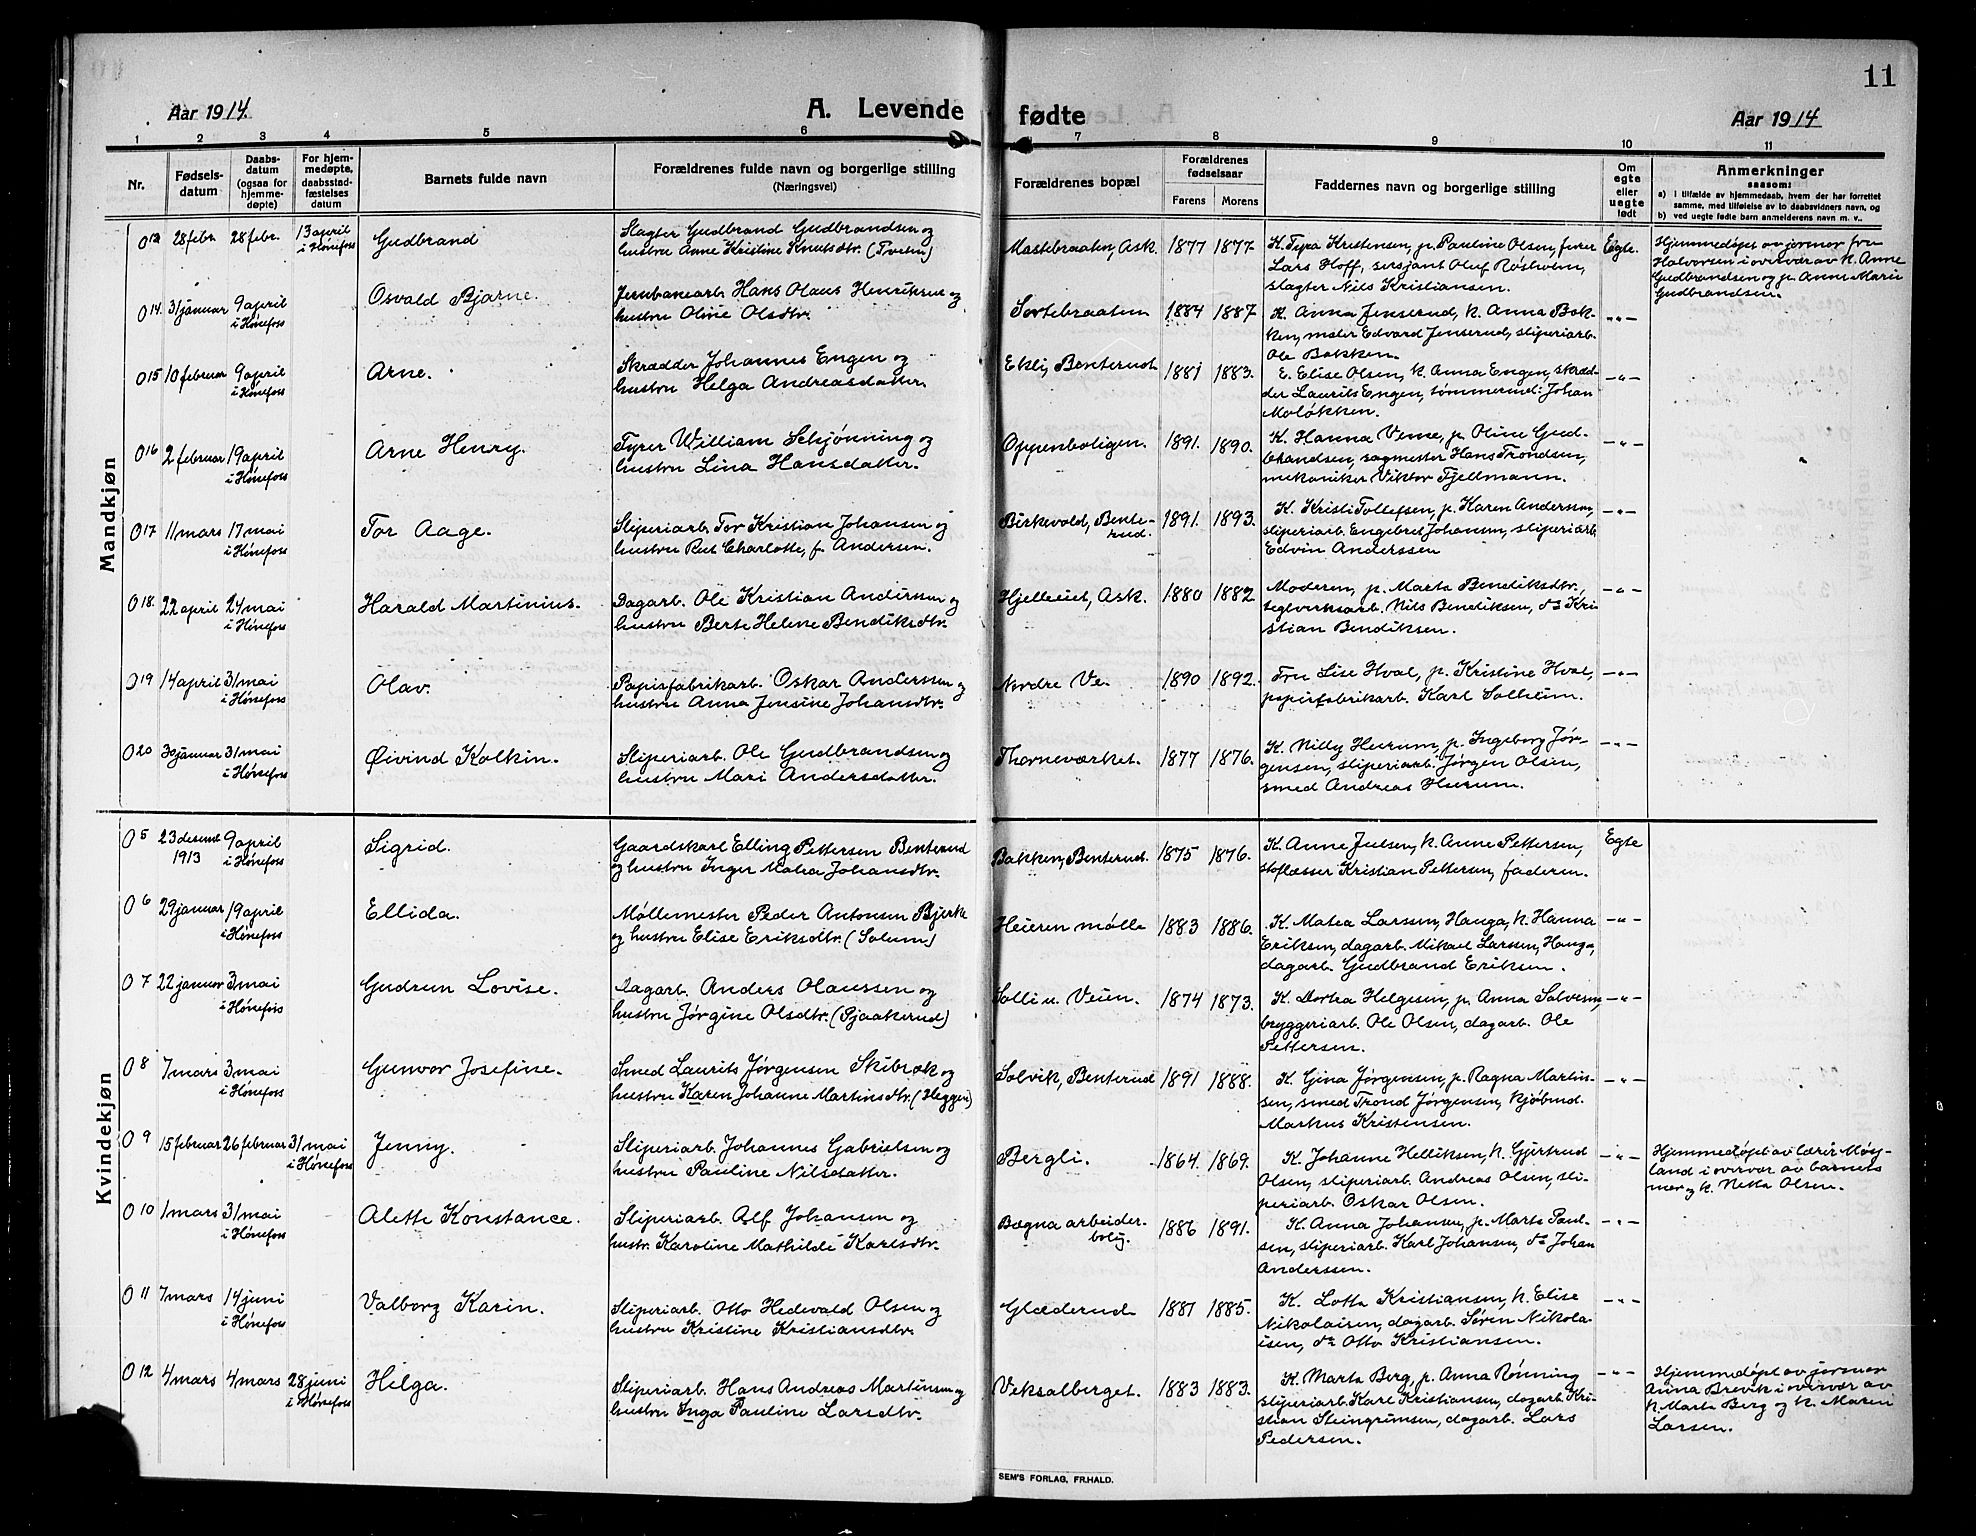 11
Aar 1914.
A. Levende
fødte
Aar 1914
1 2 3 4 5 6 7 8 9 10 11
Nr.
Fødsels-
datum
Daabs-
datum
(ogsaa for
hjemme-
døpte)
For hjem-
medøpte,
daabsstad-
fæstelses
datum
Barnets fulde navn
Forældrenes fulde navn og borgerlige stilling
(Næringsvei)
Forældrenes bopæl
Forældrenes
fødselsaar
Farens Morens
Faddernes navn og borgerlige stilling
Om
egte
eller
uegte
født
Anmerkninger
saasom:
a) i tilfælde av hjemmedaab, hvem der har forrettet
samme, med tilføielse av to daabsvidners navn, og
b) ved uegte fødte barn anmelderens navn m. v..
Mandkjøn
013 28 febr. 28 febr. 13 april
i Hønefoss
Gudbrand
Slagter Gudbrand Gudbrandsen og
hustru Anne Kristine Knutsdtr.
Mastebraaten, Ask. 1877 1877
K. Tyra Kristensen, p. Pauline Olsen, furer
Lars Hoff, sersjant Oluf Røsholm,
slagter Nils Kristiansen.
Egte.
Hjemmedøpt av jormor fru
Halvorsen i overvær av k. Anne
Gudbrandsen og p. Anne Marie
Gudbrandsen.
014. 31 januar 9 april
i Hønefoss
Osvald Bjarne.
Jernbanearb. Hans Olaus Henriksen og
hustru Oline Olsdtr.
Sortebraaten 1884 1887
K. Anna Jenserud, k. Anna Bak-
ken, maler Edvard Jenserud, sliperiarb.
Ole Bakken.
-"-
015 10 februar 9 april
i Hønefoss
Arne.
Skrædder Johannes Engen og
hustru Helga Andreasdatter.
Ekli, Benterud. 1881 1883.
E. Elise Olsen, k. Anna Engen, skræd-
der Laurits Engen, tømmermd. Johan
Moløkken.
-"-
016 2 februar 19 april
i Hønefoss
Arne Henry.
Fyrer William Schjønning og
hustru Lina Hansdatter.
Oppenboligen. 1891. 1890.
K. Hanna Veme, p. Oline Gud-
brandsen, sagmester Hans Trondsen,
mekaniker Viktor Fjellmann.
-"-
017 11 mars 17 mai
i Hønefoss
Tor Aage.
Sliperiarb. Tor Kristian Johansen og
hustru Rut Charlotte, f. Andersen.
Birkevold, Bente-
rud. 1891. 1893.
K. Kristi Tollefsen, p. Karen Andersen,
sliperiarb. Engebret Johansen, sliperiarb.
Edvin Anderssen
-"-
018. 22 april 24 mai
i Hønefoss
Harald Martinius.
Dagarb. Ole Kristian Andersen og
hustru Berte Helene Bendiksdtr.
Hjelleiet, Ask. 1880 1882
Moderen, p. Marta Bendiksdtr.,
teglverksarb. Nils Bendiksen, do Kri-
stian Bendiksen.
-"-
019 14 april 31 mai
i Hønefoss
Olav.
Papirfabrikarb. Oskar Anderssen og
hustru Anna Jensine Johansdtr.
Nordre Ve. 1890 1892.
Fru Lise Hval, p. Kristine Hval,
papirfabrikarb. Karl Solheim.
-"-
020 30 januar 31 mai
i Hønefoss
Øivind Kolkin.
Sliperiarb. Ole Gudbrandsen og
hustru Mari Andersdatter.
Thorneværket. 1877 1876.
K. Nilly Heirum, p. Ingeborg Jør-
gensen, sliperiarb. Jørgen Olsen,
smed Andreas Heirum.
-"-
Kvindekjøn
05 23 desemb. 9 april
1913 i Hønefoss
Sigrid.
Gaardskarl Elling Pettersen Benterud
og hustru Inger Malia Johansdtr.
Bakken, Benterud. 1875 1876.
K. Anne Juelsen, k. Anne Pettersen,
stoflæsser Kristian Pettersen, faderen.
Egte
06 29 januar 19 april
i Hønefoss
Ellida.
Møllemester Peder Antonsen Bjerke
og hustru Elise Eriksdtr. (Solum)
Heieren mølle 1883 1886.
K. Matea Larsen, Hauga, k. Hanna
Eriksen, dagarb. Mikael Larsen, Hauga,
dagarb. Gudbrand Eriksen.
-"-
07 22 januar 3 mai
i Hønefoss
Gudrun Lovise.
Dagarb. Anders Olaussen og
hustru Jørgine Olsdtr. (Pjaakerud)
Solli u. Veien. 1874 1873.
K. Dortea Helgesen, p. Anna Solvesen,
bryggeriarb. Ole Olsen, dagarb. Ole
Pettersen.
-"-
08 7 mars 3 mai
i Hønefoss
Gunvor Josefine.
Smed Laurits Jørgensen Skibræk og
hustru Karen Johanne Martinsdtr. (Heggen)
Solvik, Benterud 1891 1888.
K. Gina Jørgensen, p. Ragna Martin-
sen, smed Trond Jørgensen, kjøbmd.
Markus Kristensen.
-"-
09 15 februar 26 februar 31 mai
i Hønefoss
Jenny.
Sliperiarb. Johannes Gabrielsen og
hustru Pauline Nilsdatter.
Bergli. 1864. 1869.
K. Johanne Helliksen, k. Gjertrud
Olsen, sliperiarb. Andreas Olsen, sli-
periarb. Oskar Olsen.
-"-
Hjemmedøpt av lærer Møy-
land i overvær av barnets
mor og k. Netta Olsen.
010 1 mars 31 mai
i Hønefoss
Alette Konstance.
Sliperiarb. Alf Johansen og
hustr. Karoline Mathilde Karlsdtr.
Bægna arbeider-
bolig. 1886 1891.
K. Anna Johansen, p. Marte Paul-
sen, sliperiarb. Karl Johansen, do Johan
Anderssen.
-"-
011 7 mars 14 juni
i Hønefoss
Valborg Karin.
Sliperiarb. Otto Hedevald Olsen og
hustru Kristine Kristiansdtr.
Glæderud 1881 1885.
K. Lotta Kristiansen, k. Elise
Nikolaisen, dagarb. Søren Nikola-
isen, do Otto Kristiansen.
-"-
012 4 mars 4 mars 28 juni
i Hønefoss
Helga.
Sliperiarb. Hans Andreas Martinsen og
hustru Inga Pauline Larsdtr.
Veksalberget. 1883 1883.
K. Marta Berg, p. Anna Rønning
sliperiarb. Karl Kristiansen, dagarb. Kri-
stian Steingrimsen, dagarb. Lars
Pedersen.
-"-
Hjemmedøpt av jormor
Anna Brevik i overvær av
k. Marta Berg og k. Maren
Larsen.
SEM'S FORLAG, FR.HALD.